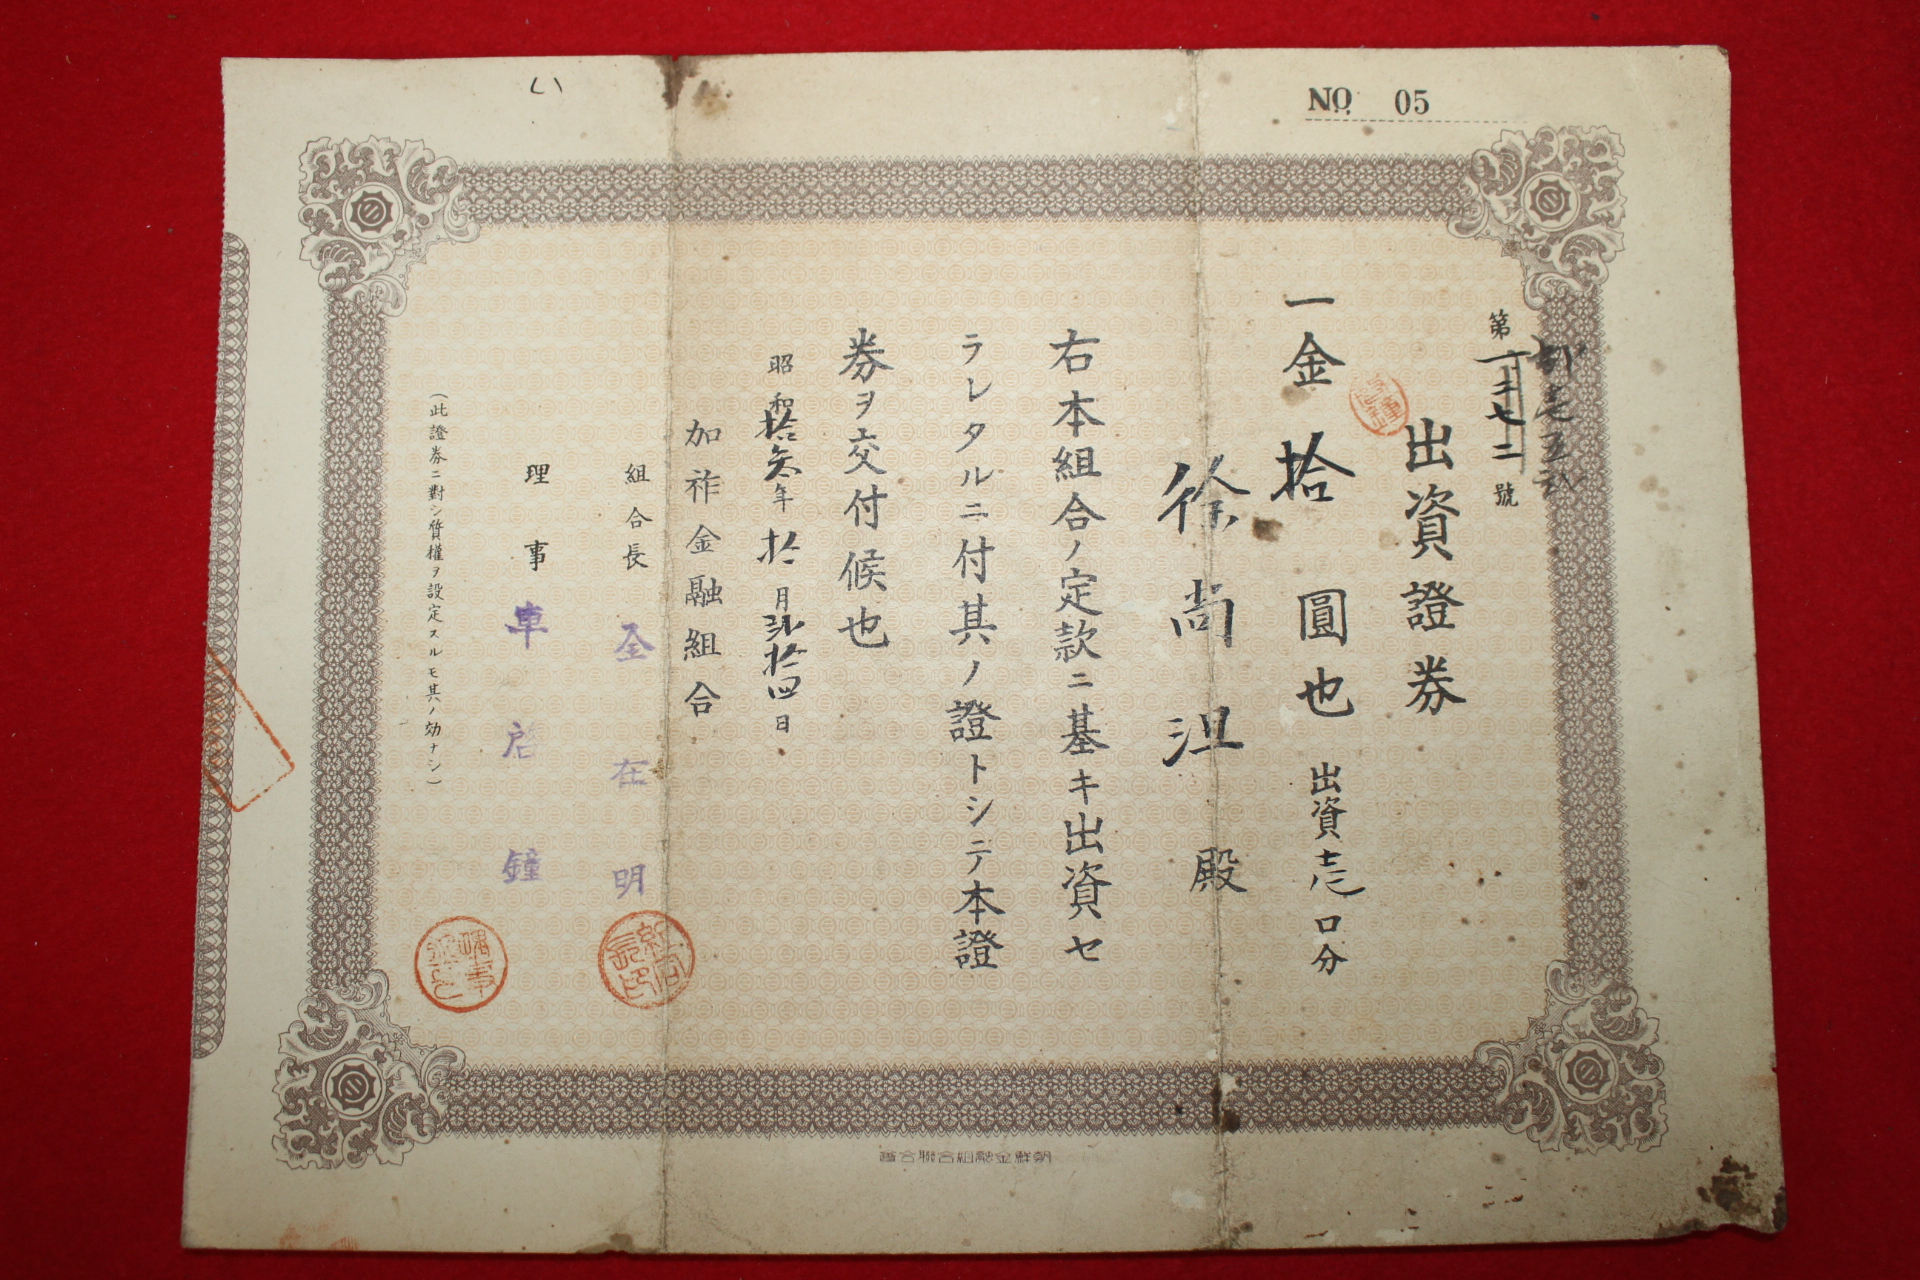 NO. 05
い
第一三七二號
出資證券
一金拾圓也 出資壱口分
徐尚沮殿
右本組合ノ定款ニ基キ出資セ
ラレタルニ付其ノ證トシテ本證
券ヲ交付候也
昭和拾参年拾月弐拾四日
加祚金融組合
組合長 金在明
理事 車 鐘
(此證券ニ對シ質權ヲ設定スルモ其ノ効ナシ)
朝鮮金融組合聯合會